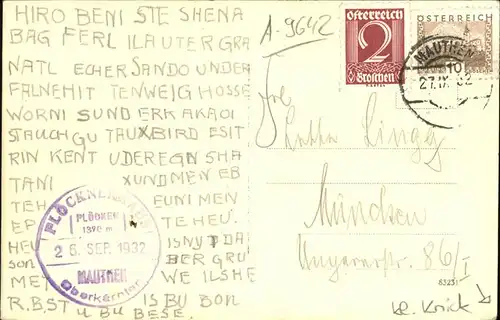 HIRO BENI STE SHENA
BAG FERL ILAUTER GRA
NATL ECHER SANDO UNDER
FALNEHIT TENWEIG HOSSE
WORNI SUND ERKAKAOI
STAUCH GU TAUXBIRD ESIT
RIN KENT UDEREGN SHA
TANI XUNDMEN EB
TEH EUNIMEN
EP TE HEU.
HEU ISNYT DA
SON BER GRU
MET WE ILSHE
R.B,ST IS BU BON
U BU BESE.
PLÖCKEN
1370 m
26. SEP. 1932
MAUTHEN
Oberkärnten
A-9642
Österreich
2
Groschen
ÖSTERREICH
MAUTHEN
27.IX.32
Frl.
Lotte Lingg
München
Ungererstr. 86/I
83231
kl. Knick